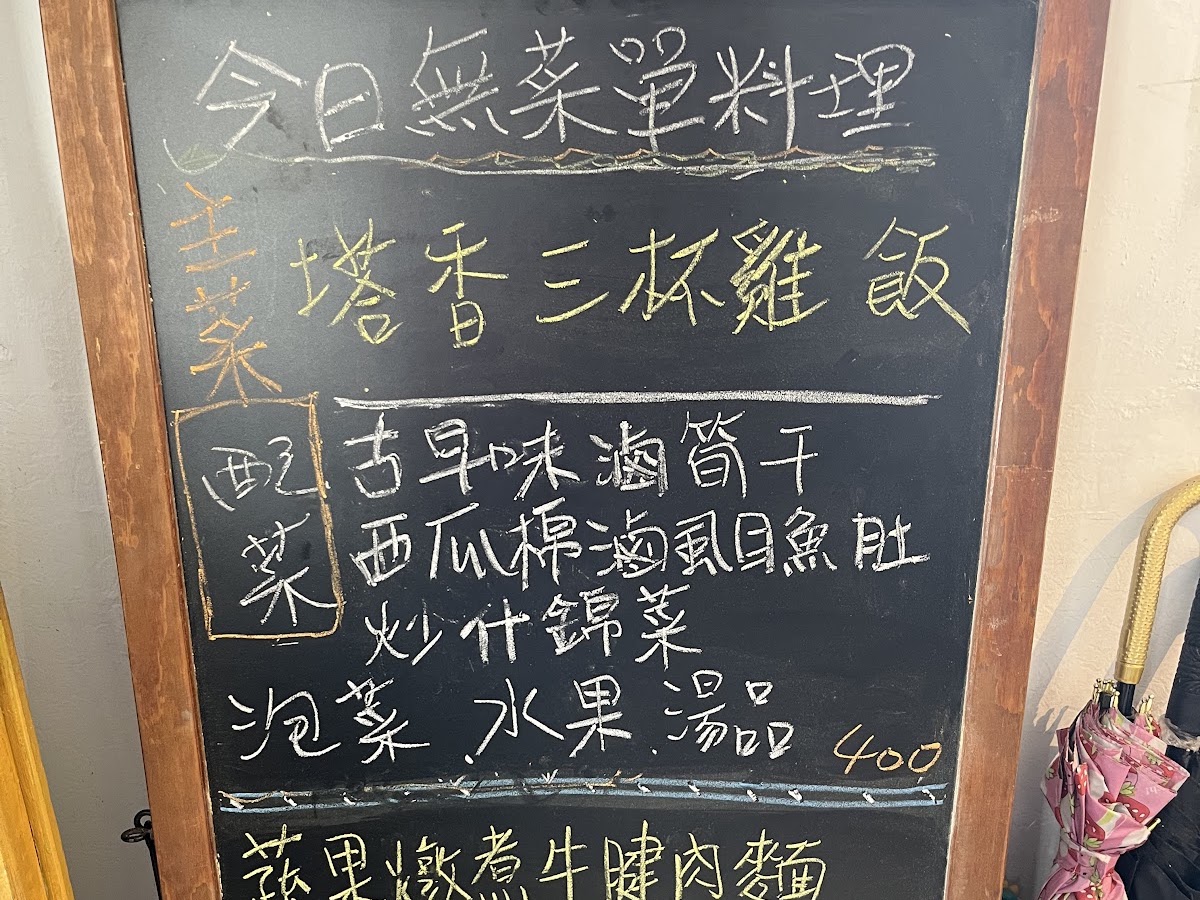 今日無菜單料理
主菜
塔香三杯雞飯
配菜
古早味滷筍干
西瓜棉滷虱目魚肚
炒什錦菜
泡菜.水果.湯品 400
蔬果燉煮牛腱肉麵